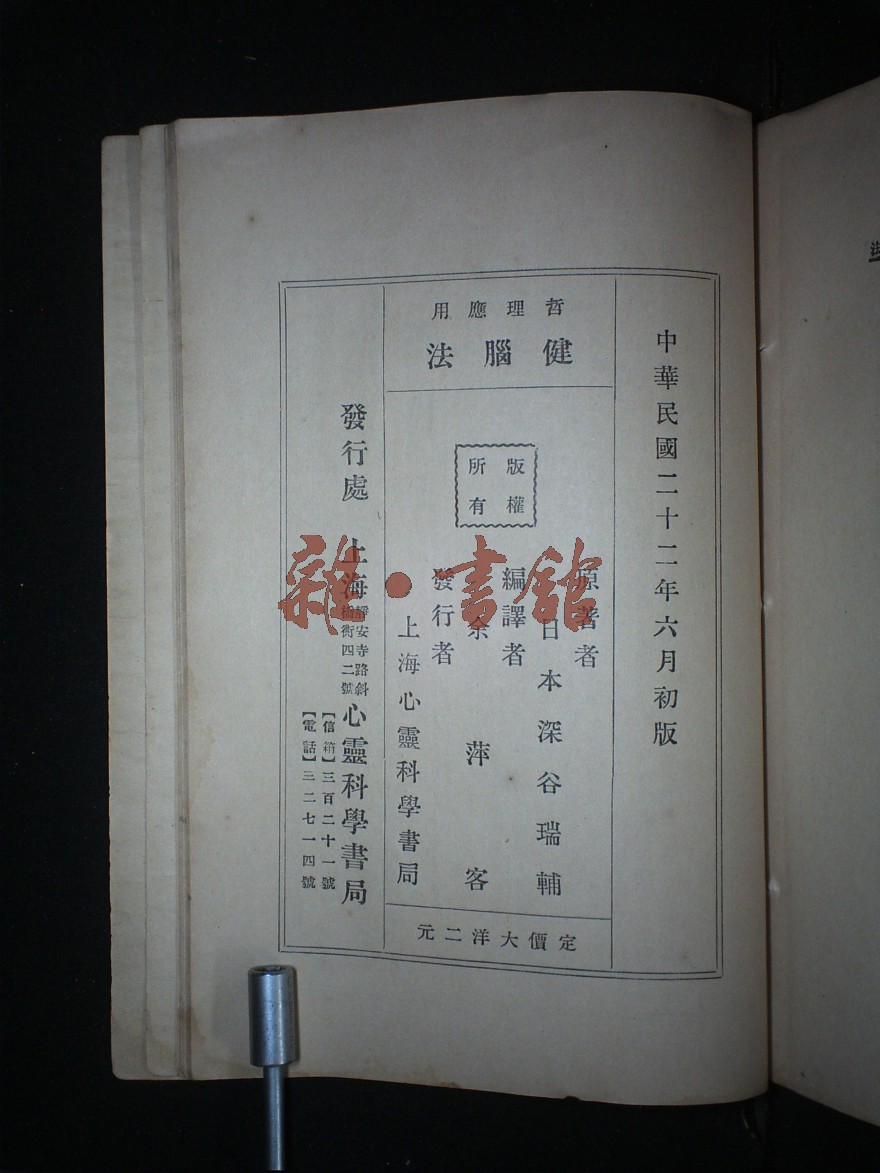 中華民國二十二年六月初版
哲理應用
健腦法
版權
所有
原著者
日本深谷瑞輔
編譯者
余萍客
發行者
上海心靈科學書局
定價大洋二元
發行處
上海
靜安寺路斜
橋衖四二號
心靈科學書局
【信箱】三百二十一號
【電話】三二七一四號
雜·書館